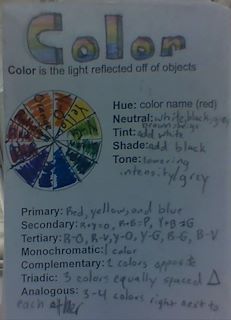 Color
Color is the light reflected off of objects
Hue: color name (red)
Neutral: white, black, gray
brown, beige
Tint: add white
Shade: add black
Tone: lowering
intensity/grey
Primary: Red, yellow, and blue
Secondary: R+Y=O, R+B=P, Y+B=G
Tertiary: R-O, R-V, Y-O, Y-G, B-G, B-V
Monochromatic: 1 color
Complementary: 2 colors opposite
Triadic: 3 colors equally spaced
Analogous: 3-4 colors right next to
each other